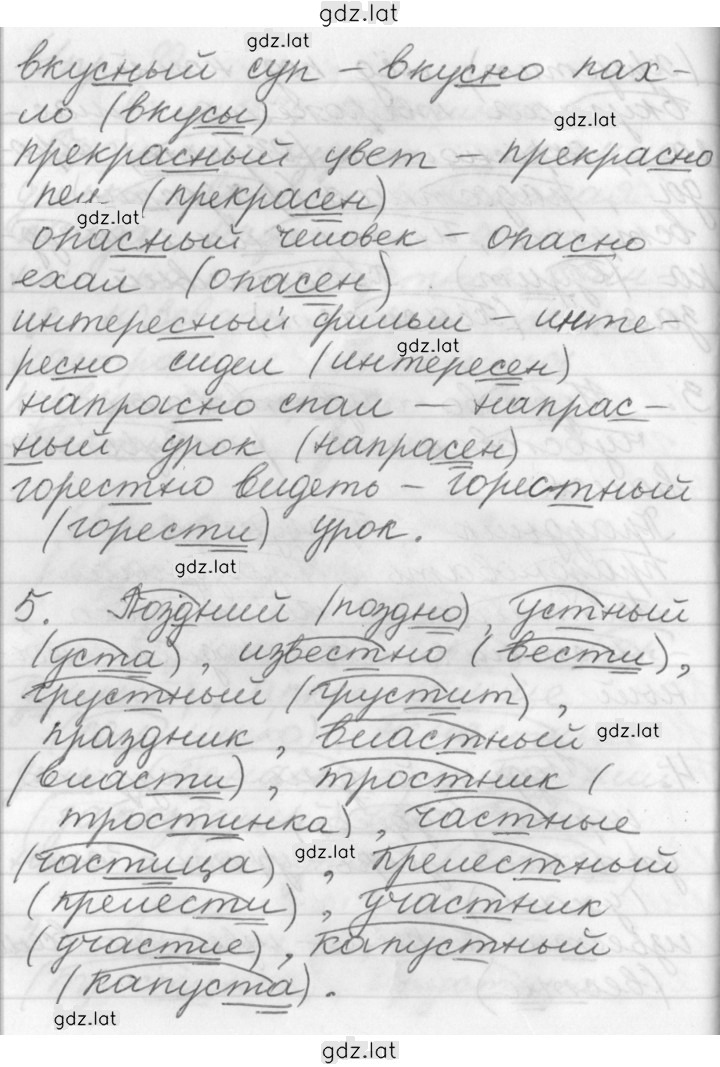 gdz.lat
gdz.lat
вкусный суп – вкусно пах-
ло (вкусы)
gdz.lat
прекрасный цвет – прекрасно
пел (прекрасен)
gdz.lat
опасный человек – опасно
ехал (опасен)
интересный фильм – инте-
gdz.lat
ресно сидел (интересен)
напрасно спал – напрас-
ный урок (напрасен)
горестно видеть – горестный
(горести) урок.
gdz.lat
5. Поздний (поздно), устный
(уста), известно (вести),
грустный (грустит),
праздник, властный
gdz.lat
(власти), тростник (
тростинка), частные
gdz.lat
(частица), прелестный
(прелести), участник
(участие), капустный
(капуста).
gdz.lat
gdz.lat